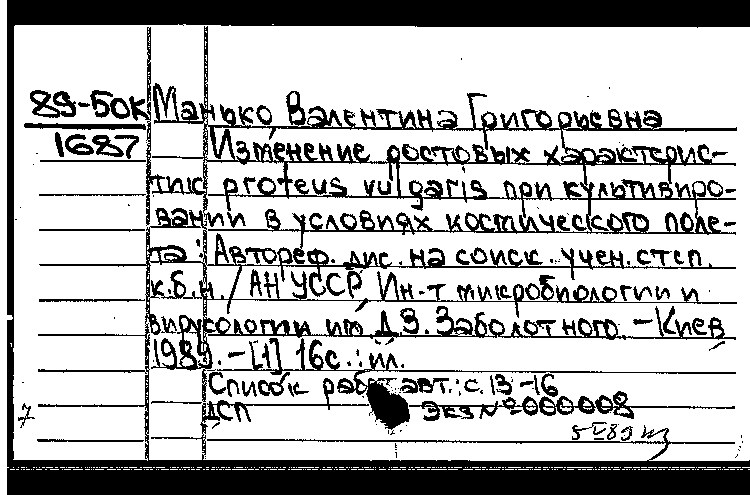 89-50к Манько Валентина Григорьевна
1687 Изменение ростовых характерис-
тик proteus vulgaris при культивиро-
вании в условиях космического поле-
та : Автореф. дис. на соиск. учен. степ.
к.б.н. / АН УССР, Ин-т микробиологии и
вирусологии им. Д.З. Заболотного. – Киев,
1989. – [1] 16с. : ил.
Список работ авт.: с. 13-16
ДСП экз № 000008
7